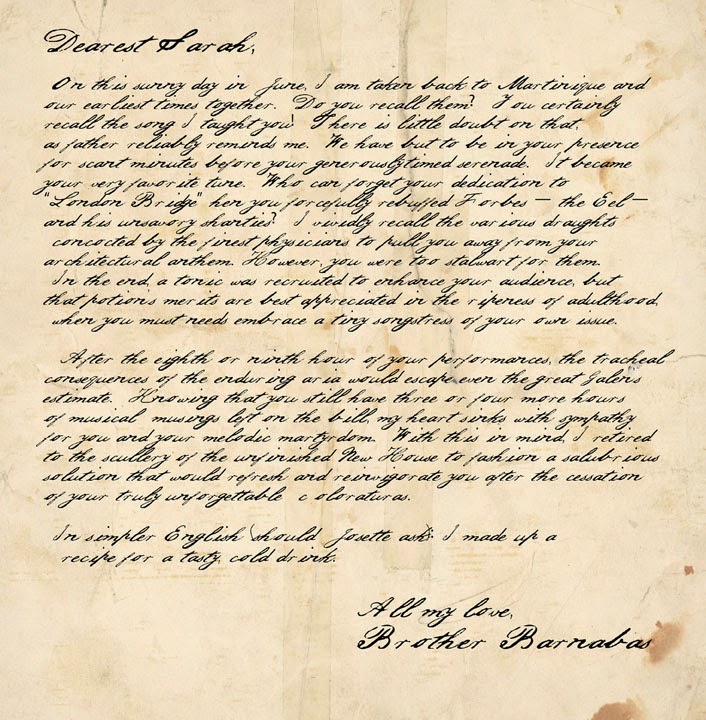 Dearest Sarah,
On this sunny day in June, I am taken back to Martinique and
our earliest times together. Do you recall them? You certainly
recall the song I taught you! There is little doubt on that,
as father reliably reminds me. We have but to be in your presence
for scant minutes before your generously timed serenade. It became
your very favorite tune. Who can forget your dedication to
"London Bridge" hen you forcefully rebuffed Forbes — the Eel —
and his unsavory shanties? I vividly recall the various draughts
concocted by the finest physicians to pull you away from your
architectural anthem. However, you were too stalwart for them.
In the end, a tonic was recruited to enhance your audience, but
that potions merits are best appreciated in the ripeness of adulthood,
when you must needs embrace a tiny songstress of your own issue.
After the eighth or ninth hour of your performances, the tracheal
consequences of the enduring aria would escape even the great Galens
estimate. Knowing that you still have three or four more hours
of musical musings left on the bill, my heart sinks with sympathy
for you and your melodic martyrdom. With this in mind, I retired
to the scullery of the unfinished New House to fashion a salubrious
solution that would refresh and reinvigorate you after the cessation
of your truly unforgettable coloraturas.
In simpler English (should Josette ask): I made up a
recipe for a tasty, cold drink.
All my love,
Brother Barnabas